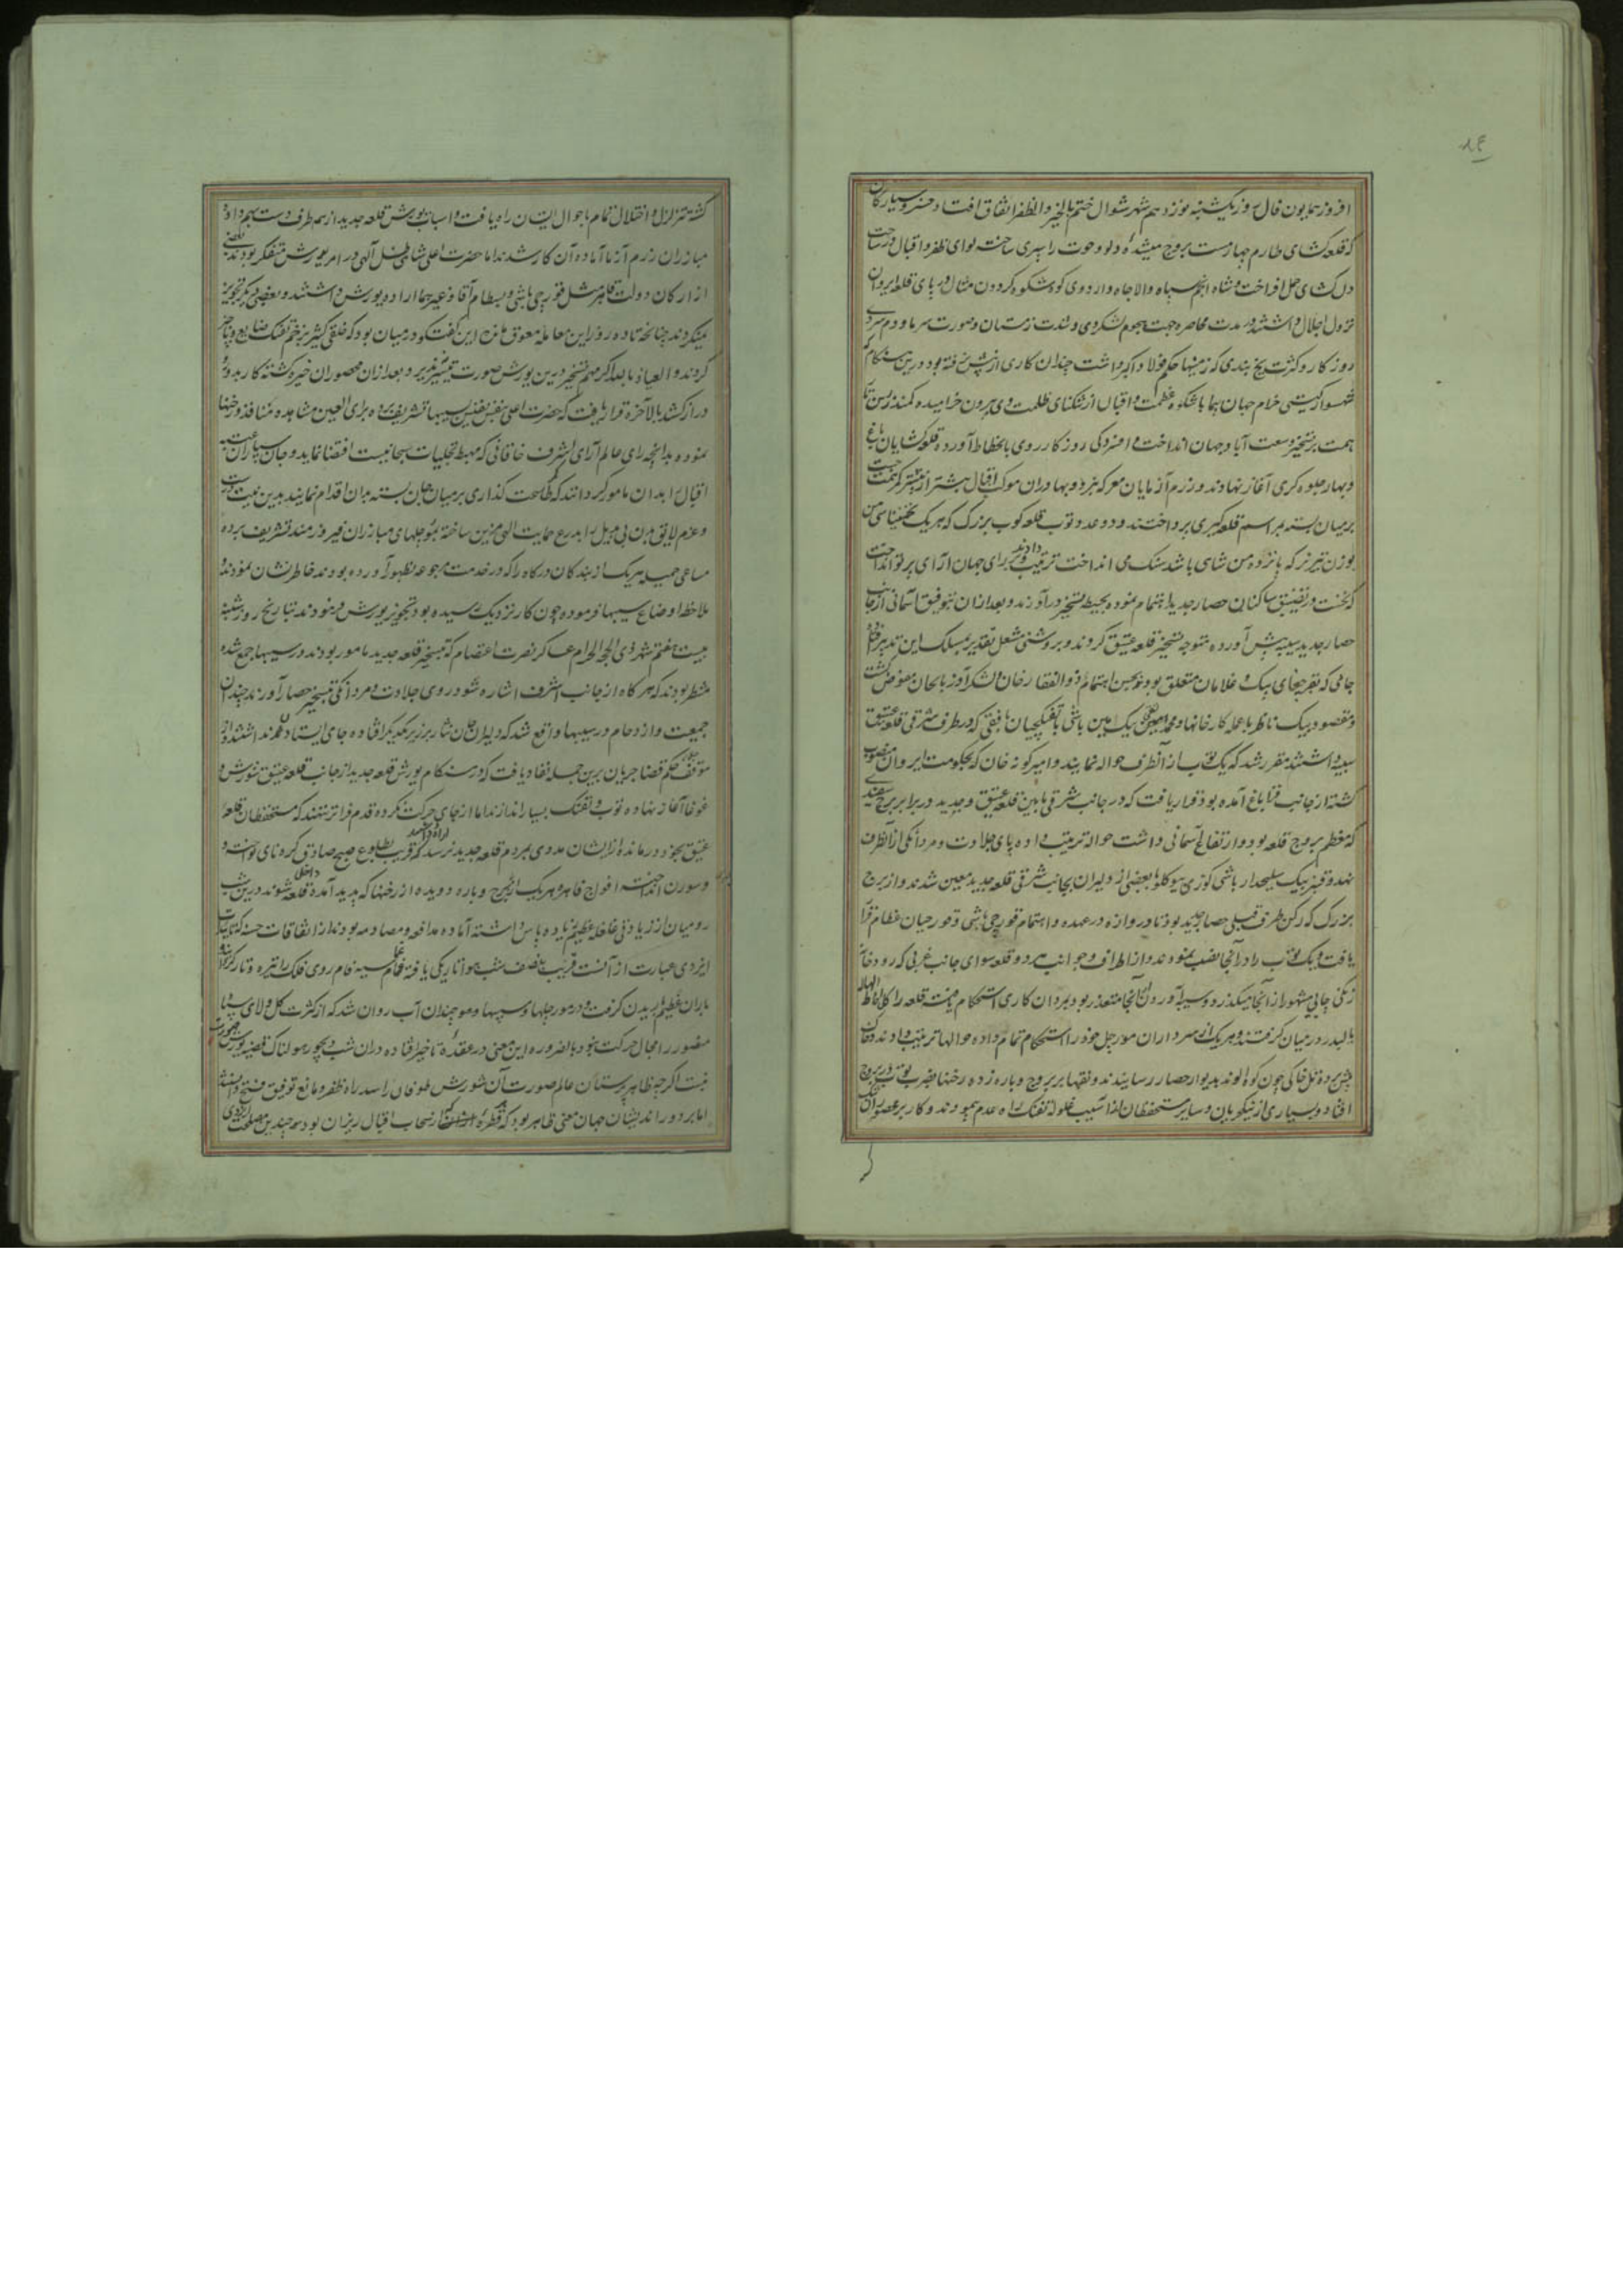 افروز همایون فال روز یکشنبه نوزدهم شهر شوال ختم بالخیر والظفر اتفاق افتاد خسرو سیارکان
که قلعه کشای طارم چهارمست بروج دلو و حوت را سپری ساخته لوای ظفر و اقبال در ساحت
دل کشای حمل افراخت و شاه انجم سپاه والاجاه و اردوی کوه شکوه کردون مثال در پای قلعه ایروان
نزول اجلال داشتند در مدت محاصره جهت هجوم لشکر دی و شدت زمستان و صورت سرما و دم سردی
روزکار و کثرت یخ بندی که زمینها حکم فولاد داشت چندان کاری از پیش نرفته بود درین هنکام که
شهسوار کیتی خرام جهان پیما باشکوه عظمت و اقبال از تنکنای ظلمت دی بیرون خرامیده کمند زرین تار
همت بر تسخیر وسعت آباد جهان انداخت و افسردکی روزکار روی بانحطاط آورده قلعه کشایان باغ
و بهار جلوه کری آغاز نهادند و رزم آزمایان معرکه نبرد و بهادران موکب اقبال بیشتر از پیشتر کمر همت
بر میان بسته بمراسم قلعه کیری پرداختند و دو عدد توپ قلعه کوب بزرک که هر یک تخمینا سی من
بوزن تبریز که پانزده من شاهی باشد سنک می انداخت ترتیب دادند و برای جهان آرای پرتو انداخت
که نخست در تضییق ساکنان حصار جدید اهتمام نموده بحیطه تسخیر درآورند و بعد از ان بتوفیق آسمانی از جانب
حصار جدید سیبه پیش آورده متوجه تسخیر قلعه عتیق کردند و بروشنی مشعل تقدیر بمسلک این تدبیر
جائی که بقرچغای بیک و غلامان متعلق بود بحسن اهتمام ذوالفقار خان و لشکر آذربایجان مفوض کشت
و مقصود بیک ناظر با عمله کارخانها و بیک مین باشی با تفنکچیان بافقی که در طرف شرقی قلعه عتیق
سیبه داشتند مقرر شد که یک توپ از آنطرف حواله نمایند و امیر کونه خان که بحکومت ایروان منصوب
کشته از جانب قراباغ آمده بود قرار یافت که در جانب شرقی مابین قلعه عتیق و جدید در برابر برج سفیدی
که معظم بروج قلعه بود و ارتفاع آسمانی داشت حواله ترتیب داده پای جلادت و مردانکی از آنطرف
نهد و قنبر بیک سلیحدار باشی کوزی بیوکلو با بعضی از دلیران بجانب شرقی قلعه جدید معین شدند و از برج
بزرک که رکن طرف قبلی حصار جدید بود تا دروازه در عهده و اهتمام قورچی باشی و قورچیان عظام قرار
یافت و یک توپ را در آنجا نصب نمودند و از اطراف و جوانب هر دو قلعه سوای جانب غربی که رودخانه
زنکی چایی مشهور از آنجا میکذرد و سیبه آوردن آنجا متعذر بود بدان کاری استحکام یافت قلعه را کالهاله
بالبدر در میان کرفتند و هر یک از سرداران مورجل خود را استحکام تمام داده حوالها ترتیب دادند و کان
پیش برده تل خاکی چون کوه الوند بدیوار حصار رسانیدند و نقبها بر بروج و باره زده رخنها بضرب توپ در بروج
افتاد و بسیاری از نیکویان و سایر مستحفظان از آسیب غلوله تفنک راه عدم پیمودند و کار بر محصوران تنک
کشته تزلزل و اختلال تمام باحوال ایشان راه یافت و اسباب یورش قلعه جدید از همه طرف دست بهم داده
مبارزان رزم آزما آماده آن کار شدند اما حضرت اعلی شاهی ظل الهی در امر یورش متفکر بودند بعضی
از ارکان دولت قاهره مثل قورچی باشی و بسطام آقا و غیرهما اراده یورش داشتند و بعضی دیکر تجویز
نمیکردند چنانچه تا ده روز این معامله معوق ماند این کفت و کو در میان بود که خلقی کثیر بزخم تفنک ضایع و ناچیز
کردند و العیاذ بالله اکر مهم تسخیر درین یورش صورت تیسیر نپذیرد و بعد از ان محصوران خیره کشته کار بدور
دراز کشد بالاخره قرار یافت که حضرت اعلی بنفس نفیس بسیبها تشریف برده برای العین مشاهده منافذ و رخنها
نموده بدانچه رای عالم آرای اشرف خاقانی که مهبط تجلیات سبحانیست اقتضا نماید و جان سپاران
اقبال را بدان مامور کردانند کمر اطاعت کذاری بر میان جان بسته بدان اقدام نمایند بدین نیت درست
و عزم لایق بدن بی عدیل را بدرع حمایت الهی مزین ساخته بمورجلهای مبارزان فیروزمند تشریف برده
مساعی جمیله هر یک از بندکان درکاه را که در خدمت مرجوعه بظهور آورده بودند خاطرنشان نمودند و
ملاحظه اوضاع سیبها فرموده چون کار نزدیک رسیده بود تجویز یورش فرمودند بتاریخ روز شنبه
بیست و هفتم شهر ذی الحجة الحرام عساکر نصرت اعتصام که بتسخیر قلعه جدید مامور بودند در سیبها جمع شده
منتظر بودند که هر کاه از جانب اشرف اشاره شود روی جلادت و مردانکی بتسخیر حصار آورند چندان
جمعیت و ازدحام در سیبها واقع شد که دلیران جان نثار بر زبر یکدیکر افتاده جای ایستادن نداشتند و از
موقف حکم قضا جریان برین جمله نفاد یافت که در هنکام یورش قلعه جدید از جانب قلعه عتیق شورش و
غوغا آغاز نهاده توپ و تفنک بسیار اندازند اما از جای حرکت نکرده قدم فراتر ننهند که مستحفظان قلعه
عتیق بخود درمانده از ایشان مددی بمردم قلعه جدید نرسد که قریب بطلوع صبح صادق کره نای نواخته و
و سورن انداخته افواج قاهره هر یک از برج و باره دویده از رخنها که پدید آمده داخل قلعه شوند درین شب
رومیان از زیادتی غلغله عظیم پاس داشته آماده مدافعه و مصادمه بودند از اتفاقات حسنه که تائیدات
ایزدی عبارت از آنست قریب بنصف شب هوا تاریکی یافته غمام سیه فام روی فلک را تیره و تار کردانید و
باران عظیم باریدن کرفت و در مورجلها و سیبها چندان آب روان شد که از کثرت کل و لای سپاه
منصور را مجال حرکت نبود بالضروره این معنی در عقده تاخیر افتاده دران شب دیجور هولناک قضیه یورش صورت
نبست اکرچه ظاهرپرستان عالم صورت آن شورش طوفان را سد راه ظفر و مانع توفیق فتح دانستند
اما بر دوراندیشان جهان معنی ظاهر بود که قطره از سحاب اقبال ریزان بود متضمن چندین مصلحت ایزدی